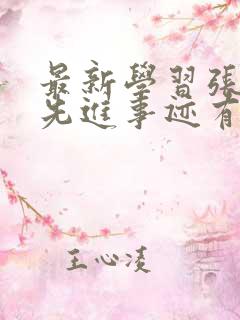 最新學習張
先進事迹有
王心凌